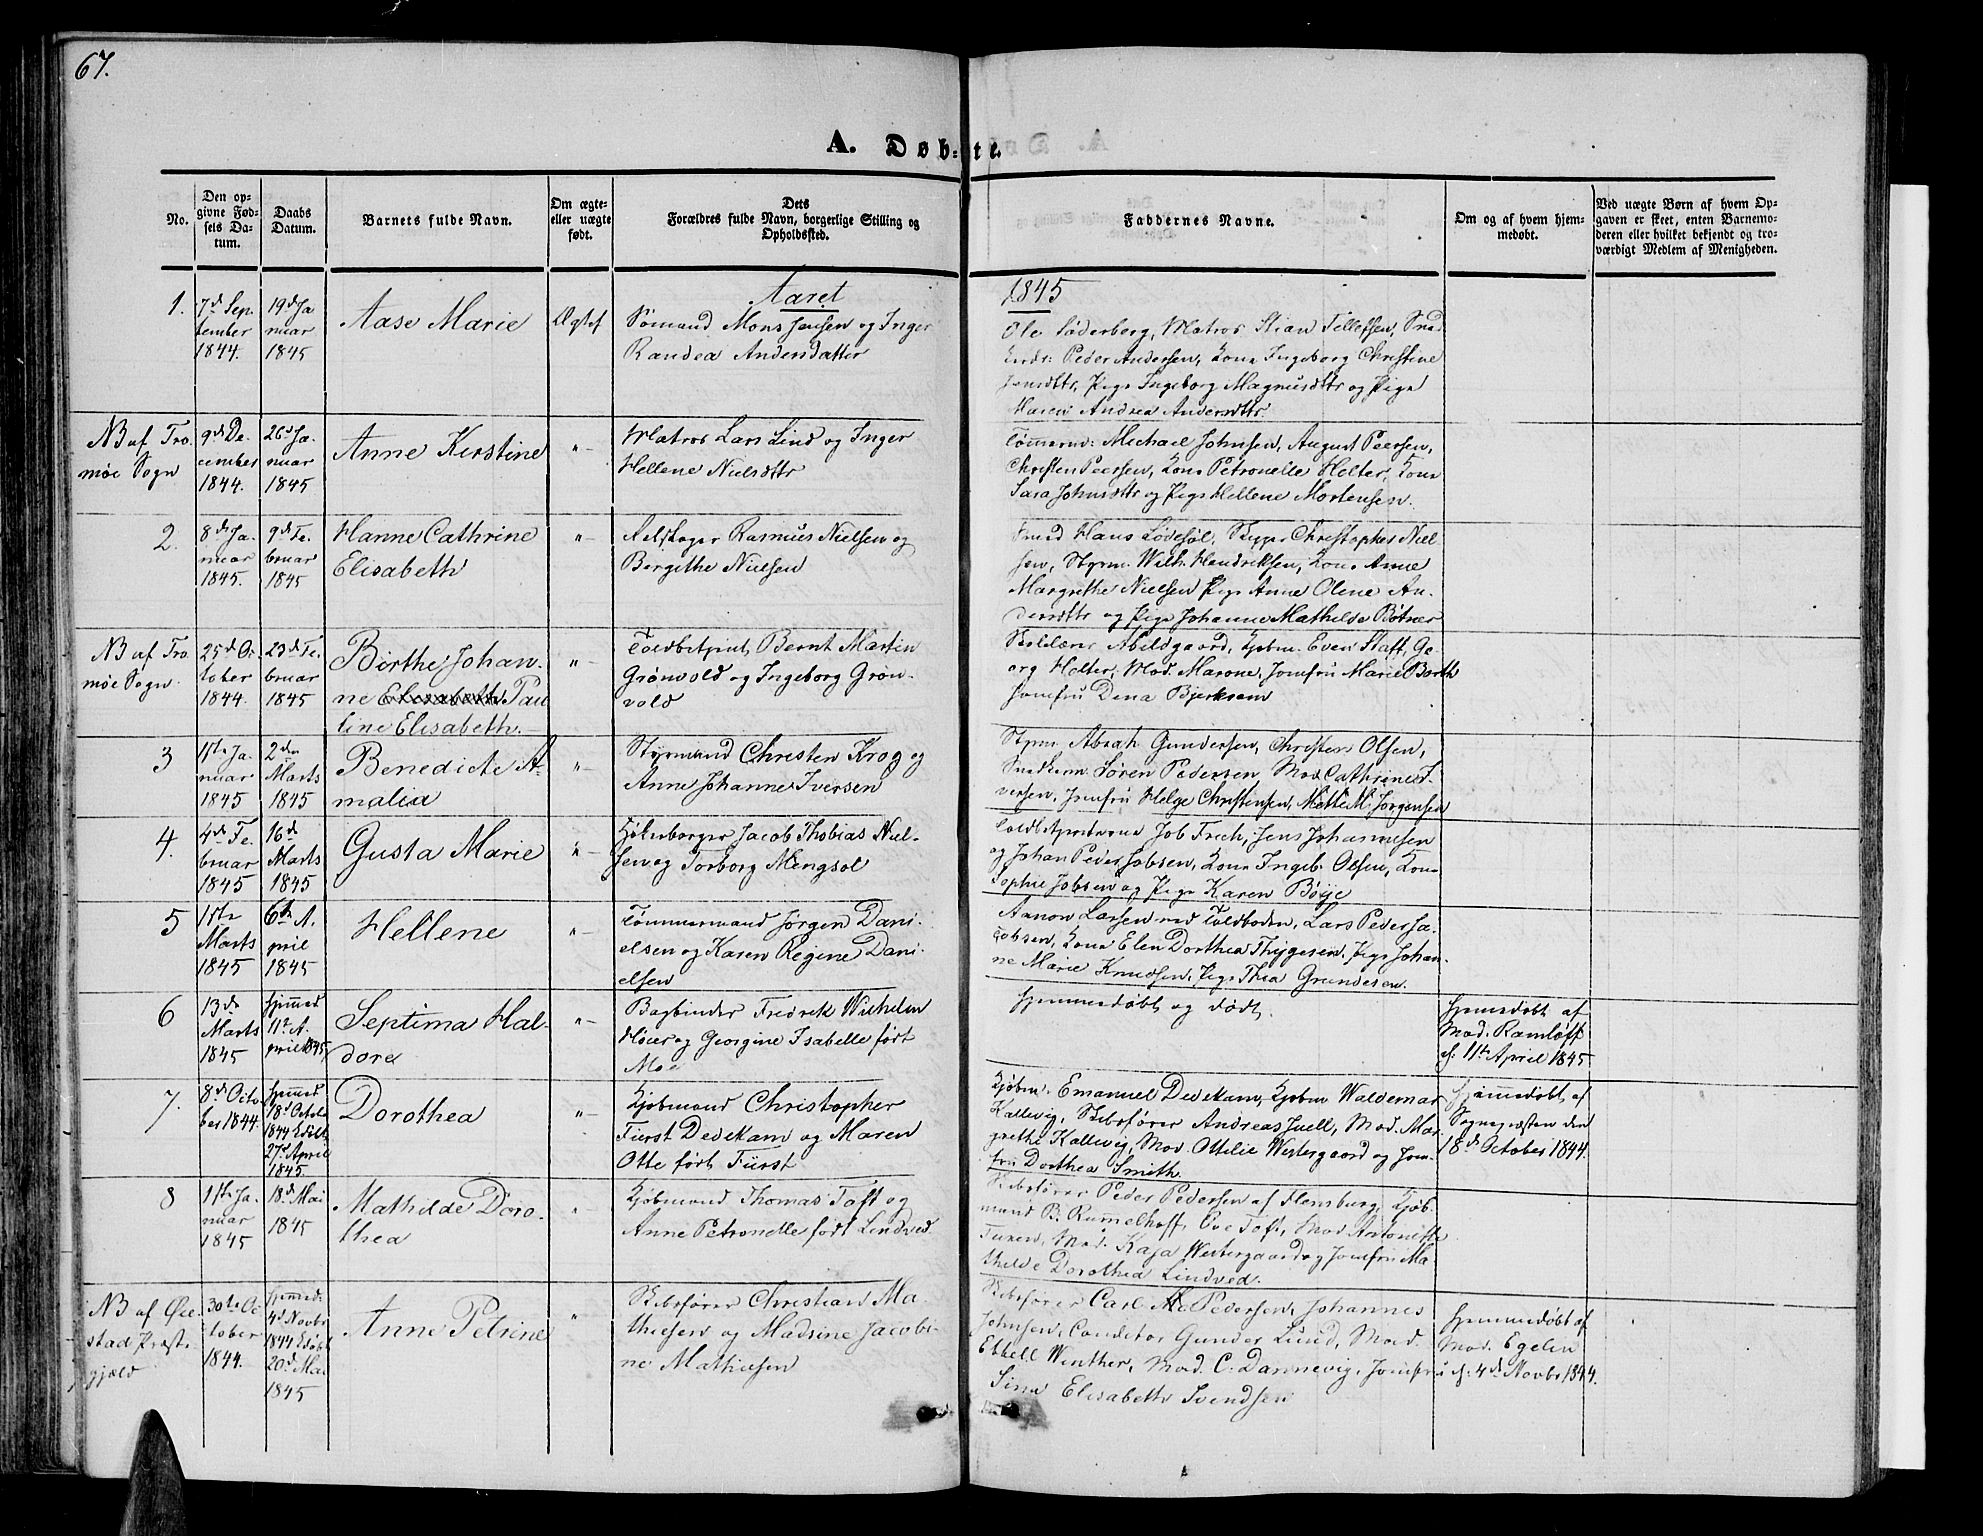 67.
A. Døb-te.
No.
Den op-
givne Fød-
sels Da-
tum.
Daabs
Datum.
Barnets fulde Navn.
Om ægte-
eller uægte
født.
Dets
Forældres fulde Navn, borgerlige Stilling og
Opholdssted.
Faddernes Navne.
Om og af hvem hjem-
medøbt.
Ved uægte Børn af hvem Op-
gaven er skeet, enten Barnemo-
deren eller hvilket bekjendt og tro-
værdigt Medlem af Menigheden.
Aaret 1845
1.
7d Sep-
tember
1844.
19d Ja
nuar
1845
Aase Marie
Ægtef
Sømand Mons Jensen og Inger
Randea Andersdatter
Ole Søderberg, Matros Stian Tellefsen, Sned-
Peder Andersen, Kone Ingeborg Christine
Jensdttr, Pige Ingeborg Magnusdttr og Pige
Maren Andrea Andersdttr.
NB af Tro
møe Sogn
9d De-
cember
1844.
26d Ja-
nuar
1845
Anne Kirstine
"-
Matros Lars Lind og Inger
Hellene Nielsdttr
Tømmerm: Michael Johnsen, August Peersen,
Christen Peersen, Kone Petronelle Holter, Kone
Sara Johnsdttr og Pige Hellene Mortensen.
2.
8d Ja-
nuar
1845.
9d Fe-
bruar
1845
Hanne Cathrine
Elisabeth
"-
Rasmus Nielsen og
Bergithe Nielsen
Smed Hans Løvesøl, Skipp. Christopher Niel
sen, Styrm. Wilh. Hendriksen, Kone Anne
Margrethe Nielsen Pige Anne Olene An-
dersdttr og Pige Johanne Mathilde Bøtner
NB af Tro
møe Sogn.
25d Oc-
tober
1844.
23d Fe-
bruar
1845
Birthe Johan-
ne Elisabeth Pau
line Elisabeth.
"-
Toldbetjent Bernt Martin
Grønvold og Ingeborg Grøn-
vold
Skolelærer Abildgaard, Kjøbm. Even Staft, Ge-
org Holter, Mad. Marone, Jomfru Marie Barth
Jomfru Dena Bjerksem
3
1ste Ja-
nuar
1845
2den
Marts
1845
Benedicte A-
malia
"-
Styrmand Christen Krog og
Anne Johanne Iversen
Styrm. Abrah Gundersen, Christen Olsen,
Snedkerm. Søren Pedersen, Mad Cathrine I-
versen, Jomfru Helge Christensen, Mette M. Jørgensen
4.
4d Fe-
bruar
1845
16d
Marts
1845
Gusta Marie
"-
Jacob Thobias Niel-
sen og Torborg Mengsol
Job Frich, Jens Johannesen
og Johan Peder Jobsen, Kone Ingeb. Olsen, Kone
Sophie Jobsen og Pige Karen Bøije
5
1ste
Marts
1845
6te A-
pril
1845
Hellene
"-
Tømmermand Jørgen Dani-
elsen og Karen Regine Dani-
elsen
Aanon Larsen ved Toldboden, Lars Peder Ja-
cobsen, Kone Elen Dorthea Thygesen, Pige Johan-
ne Marie Knudsen, Pige Thea Grundesen.
6
13de
Marts
1845
hjemmed
11te A-
pril 1845
Septima Hal-
dora
"-
Bogbinder Fredrik Wilhelm
Høier og Georgine Isabelle født
Moe
Hjemmedøbt og død.
Hjemmedøbt af
Mad. Ramløff
d. 11te April 1845
7.
8d Octo-
ber 1844.
hjemmed
18d Octob
1844
27d April
1845.
Dorothea
"-
Kjøbmand Christopher
Fürst Dedekam og Maren
Otte født Fürst
Kjøbm. Emanuel Dedekam, Kjøbm Waldemar
Kallevig, Skibsfører Andreas Juell, Mad. Mar-
grethe Kallevig, Mad. Ottelie Westergaard og Jom-
fru Dorthea Smith
Hjemmedøbt af
Sognepræsten den
18d October 1844.
8
1ste Ja-
nuar
1845
18d Mai
1845
Mathilde Doro-
thea
"-
Kjøbmand Thomas Toft og
Anne Petronelle født Lindved
Skibsfører Peder Pedersen af Flensburg, Kjøb-
mand B. Rummelhoff, Ove Toft, Mad Antonette
Tuxen, Mad. Kaja Westergaard og Jomfru Ma
thilde Dorothea Lindved.
NB af Øie-
stad Præste-
gjæld
30te Oc-
tober
1844.
hjemmed.
4d Novbr
1844
20d Mai
1845
Anne Petrine
"
Skibsfører Christian Ma-
thiesen og Madsine Jacobi-
ne Mathiesen
Skibsfører Carl Pedersen, Johannes
Johnsen, Conditor Gunder Lund, Mad.
Ebbell Winther, Mad. C. Dannevig, Jomfru
Sine Elisabeth Svendsen
Hjemmedøbt af
Mad. Egelin
d. 4d Novbr 1844.